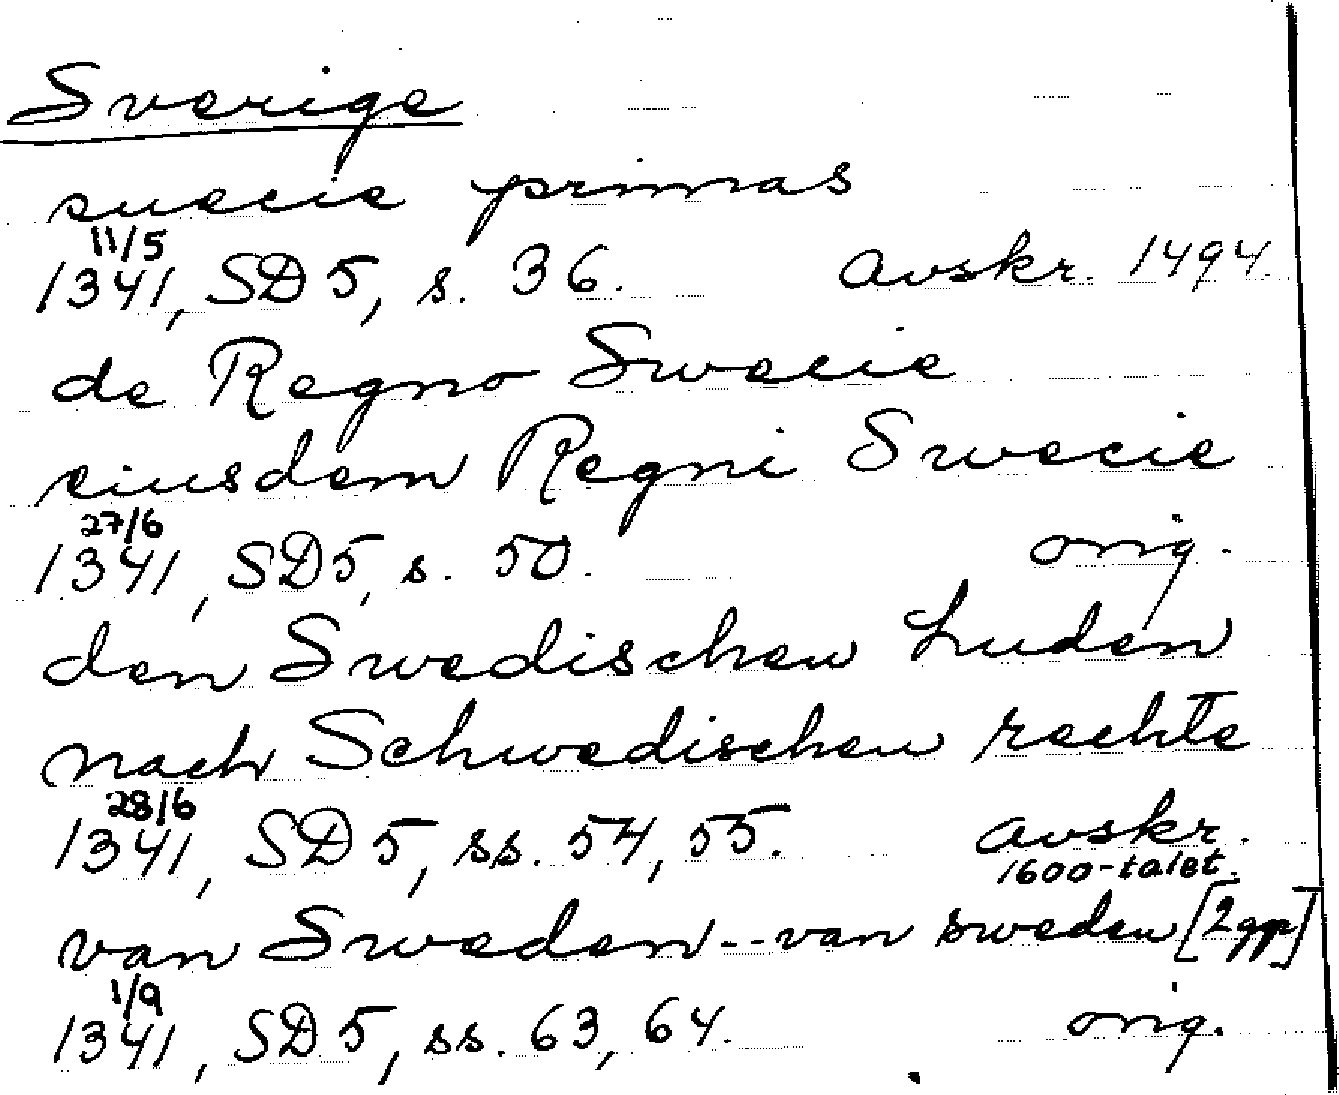 Sverige
suecie primas
11/5
1341, SD 5, s. 36. avskr. 1494.
de Regno Swecie
eiusdem Regni Swecie
27/6
1341, SD5, s. 50. orig.
den Swedischen Luden
nach Schwedischen rechte
28/6
1341, SD 5, ss. 54, 55. avskr.
1600-talet.
van Sweden -- van sweden [2 ggr]
1/9
1341, SD 5, ss. 63, 64. orig.